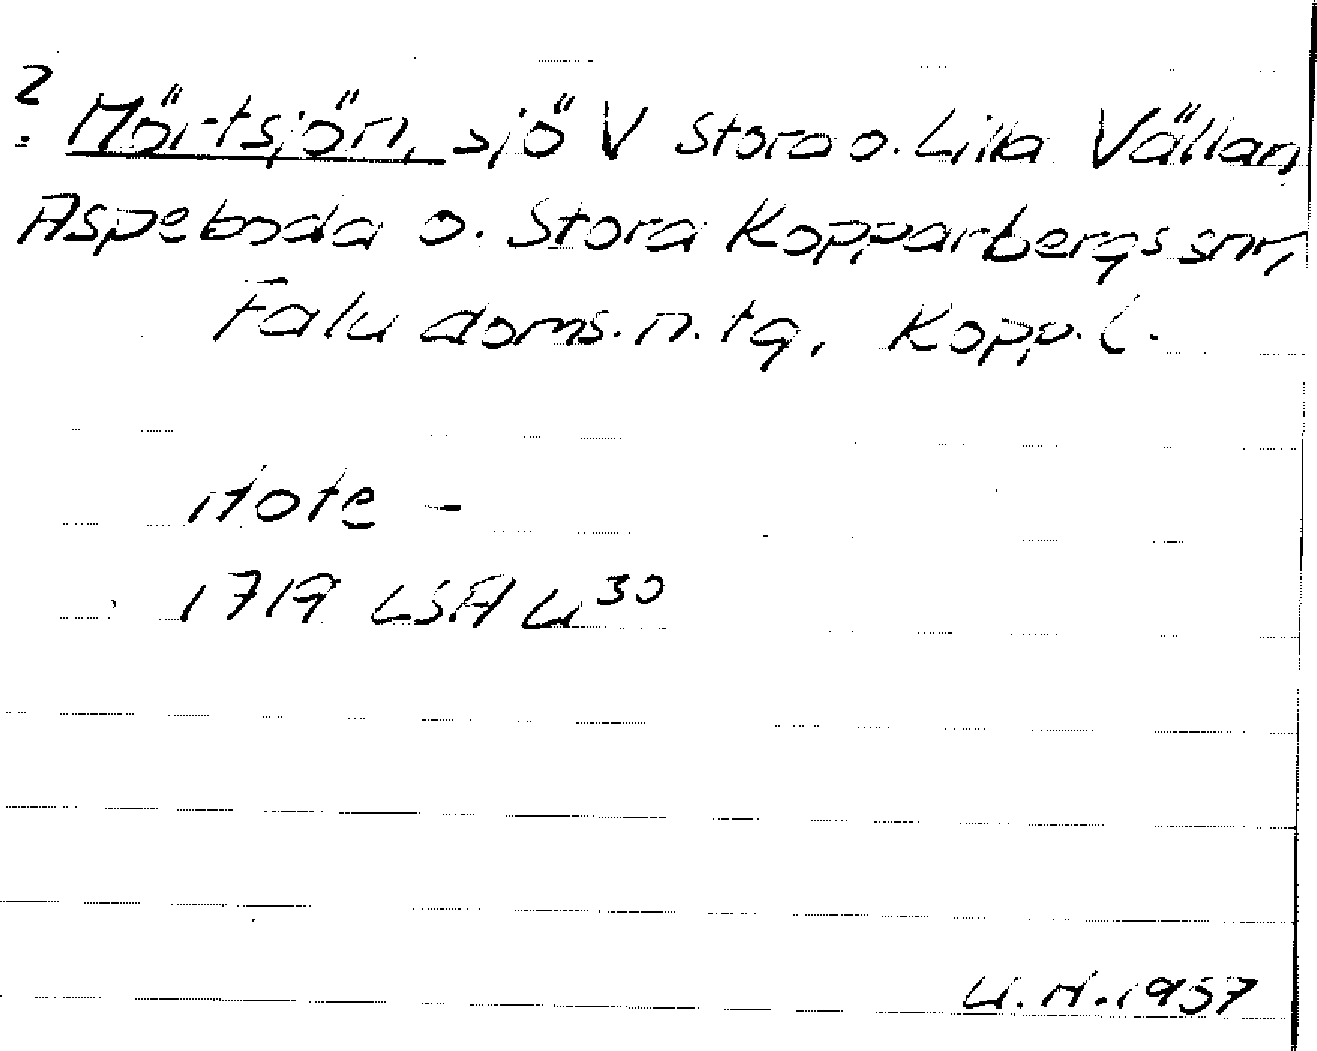 ? Mörtsjön, sjö V Stora o. Lilla Vällan
Aspeboda o. Stora Kopparbergs snr,
Falu doms. n. tg, Kopp. l.
1719 LSA U 30
1957